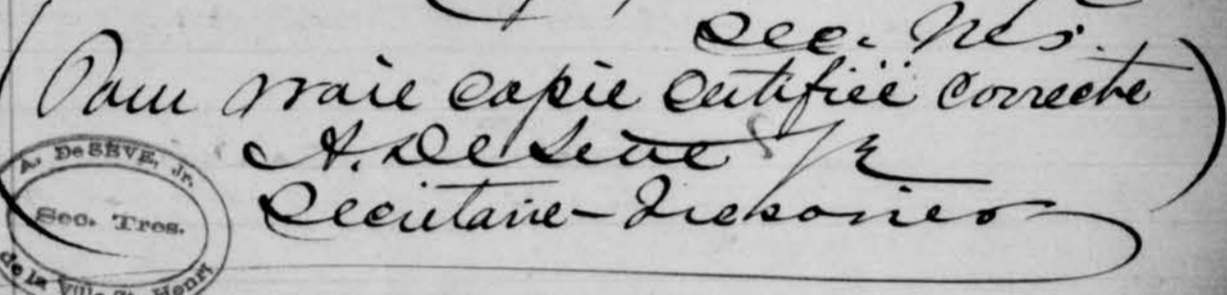 Sec. Trés.
(Pour vraie copie certifiée correcte)
A. DeSève Jr
Secrétaire-Trésorier
A. DeSÈVE, Jr.
Sec. Tres.
de la Ville St. Henri